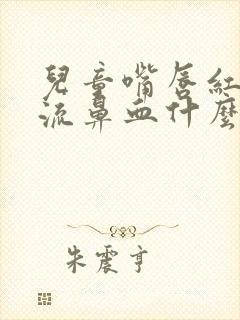 兒童嘴唇紅
流鼻血什麼
朱震亨